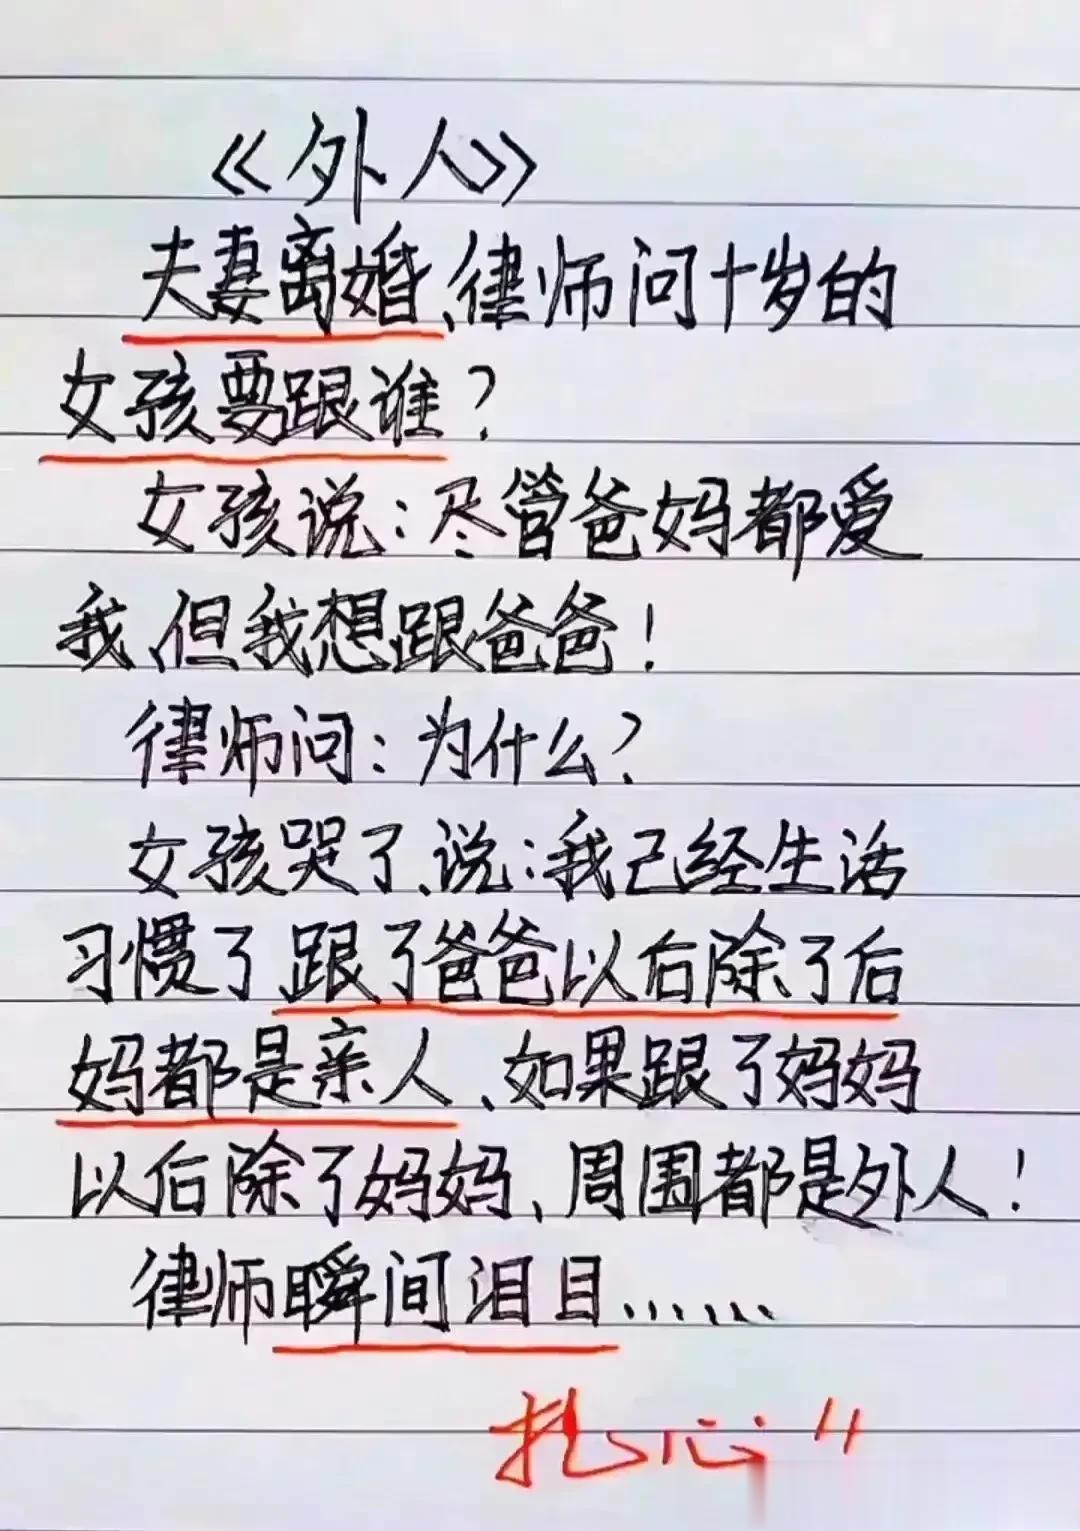 《外人》
夫妻离婚、律师问十岁的
女孩要跟谁?
女孩说:尽管爸妈都爱
我、但我想跟爸爸!
律师问:为什么?
女孩哭了、说:我已经生活
习惯了、跟了爸爸以后除了后
妈都是亲人、如果跟了妈妈
以后除了妈妈、周围都是外人!
律师瞬间泪目......
扎心"